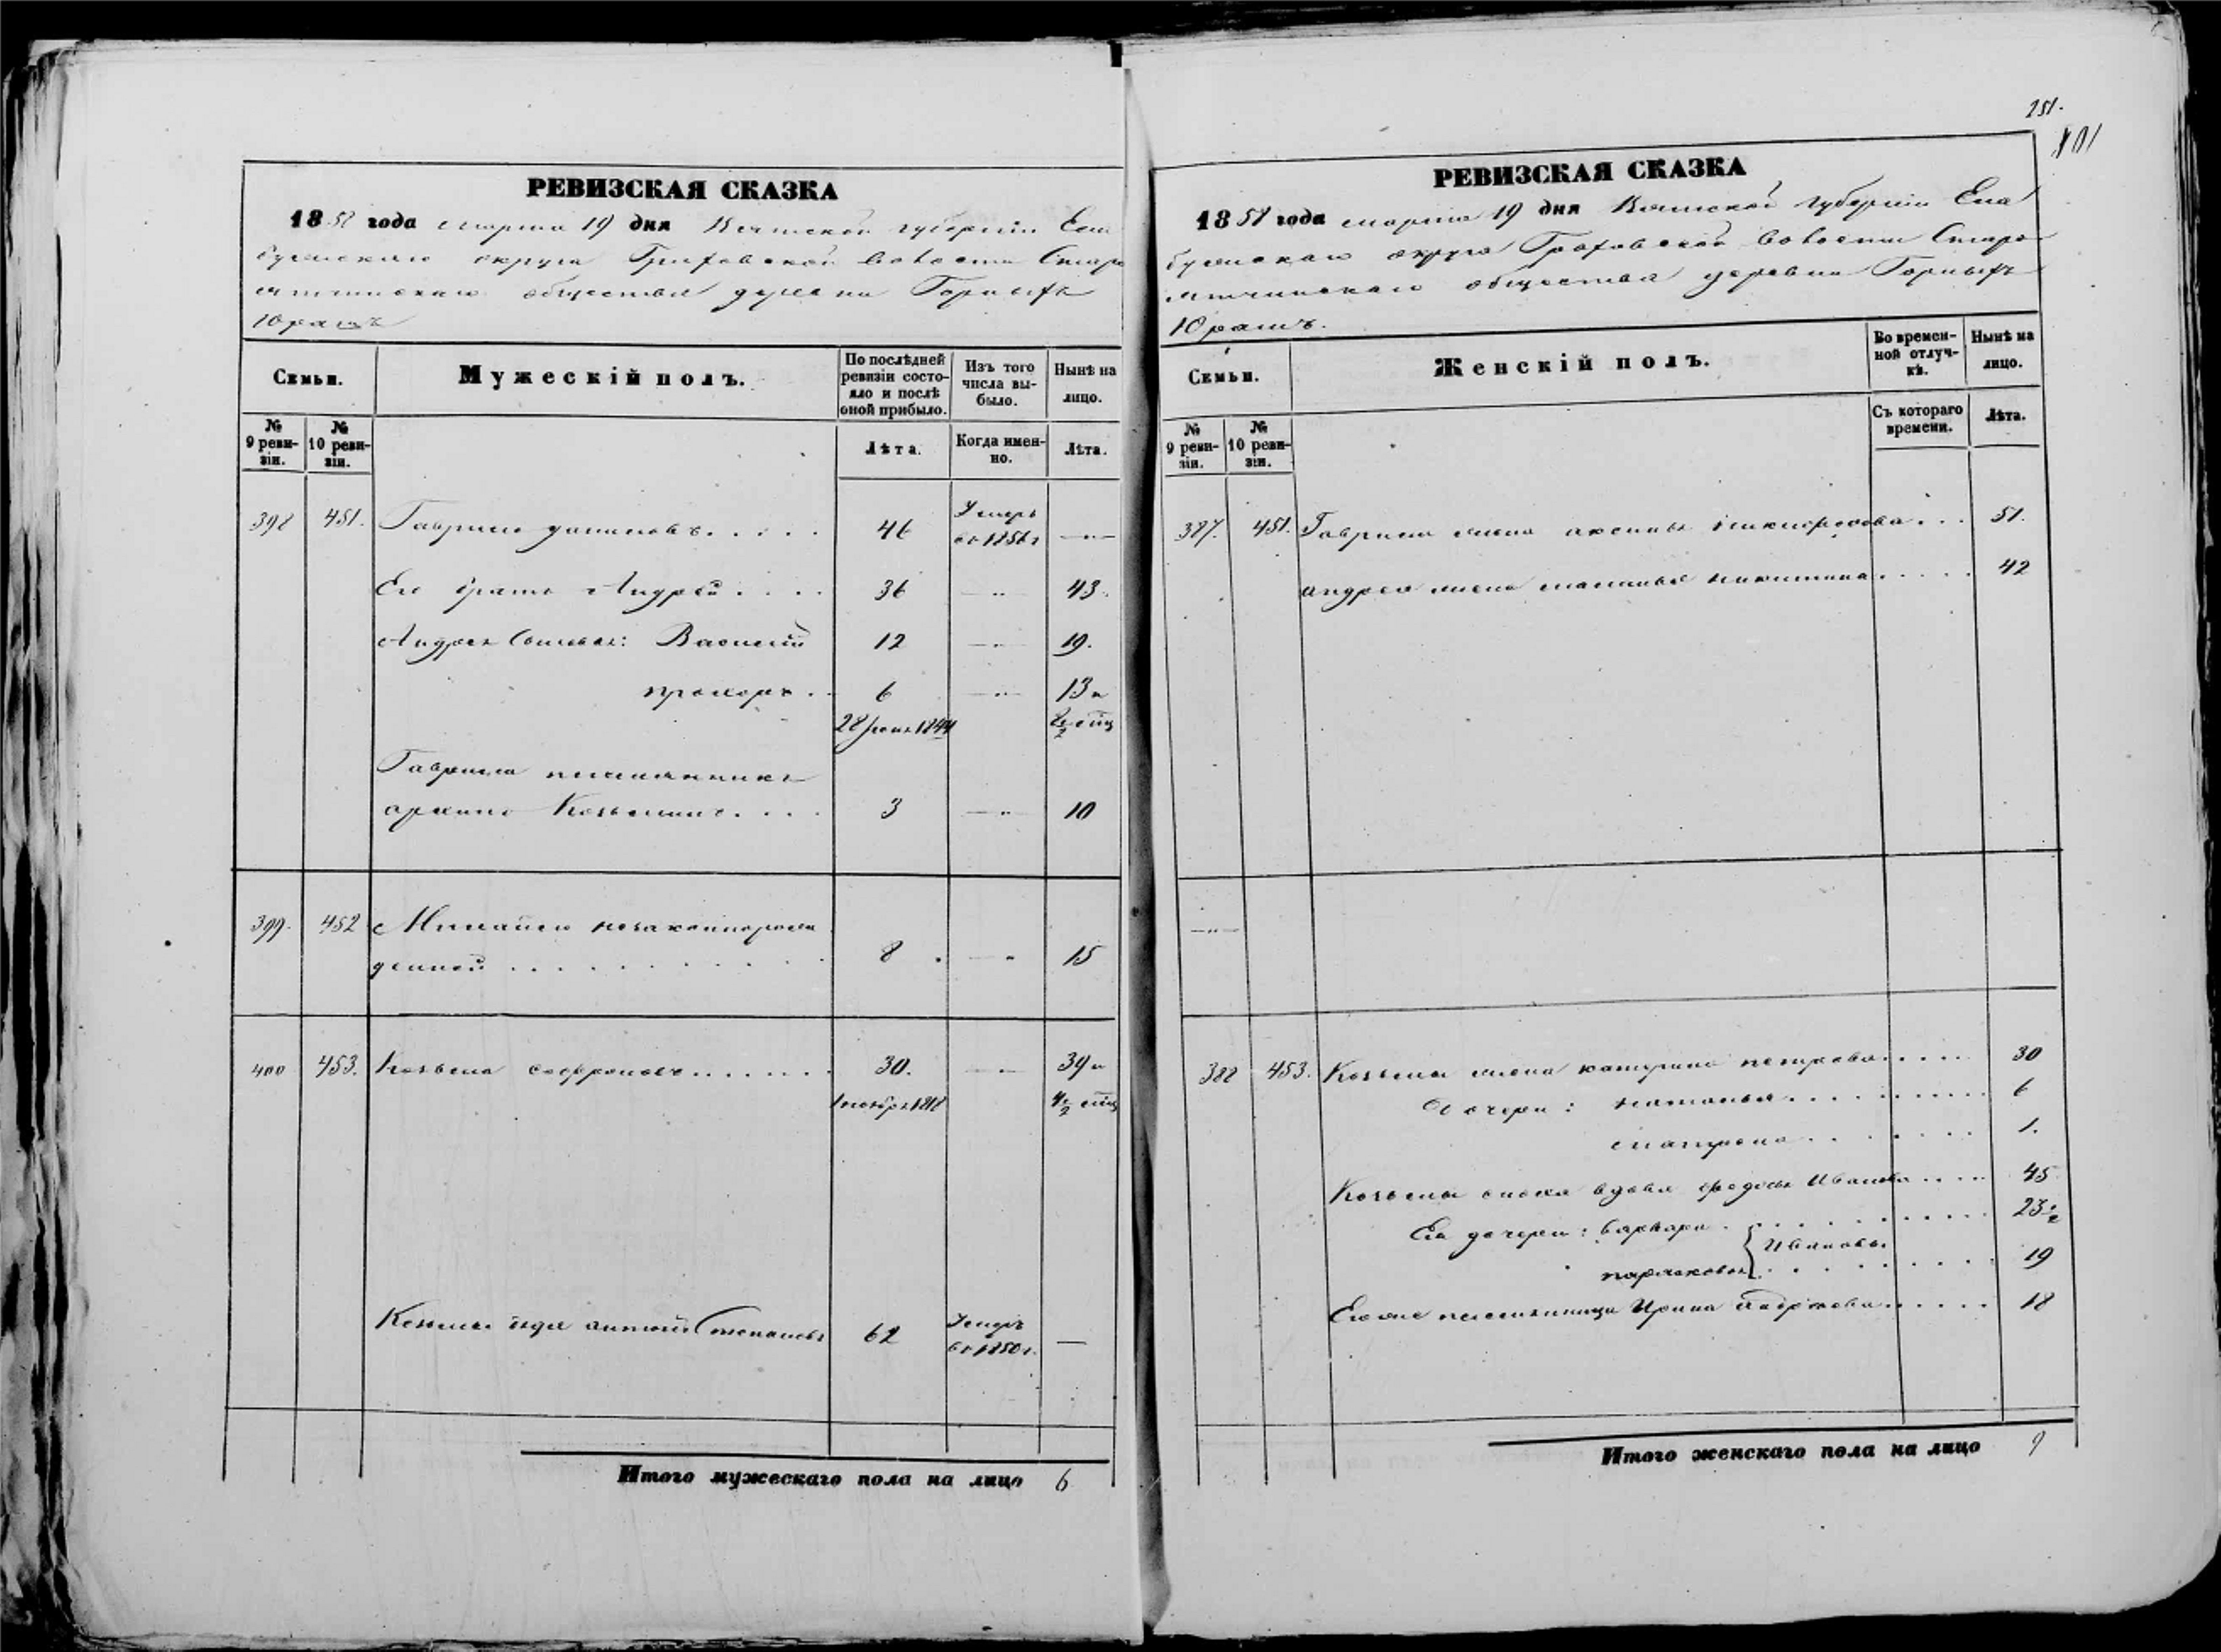 РЕВИЗСКАЯ СКАЗКА
1858 года марта 19 дня Вятской губернiи Ела
бугскаго округа Граховской волости Старо
ятчинскаго общества деревни Горныхъ
Юрашъ
Семьи.
Мужескій полъ.
По послѣдней ревизіи состояло и послѣ оной прибыло.
Изъ того числа выбыло.
Нынѣ на лицо.
№ 9 ревизіи.
№ 10 ревизіи.
Лѣта.
Когда именно.
Лѣта.
398 451. Гаврило Даниловъ. 46 Умеръ въ 1856 г —"—
Его братъ Андрей 36 —"— 43.
Андрея Сыновья: Василій 12 —"— 19.
прохоръ 6 —"— 13 и
28 1844
Гаврила племянникъ
архипъ Козьминъ. 3 —"— 10
399. 452 Михайло незаконнорож
денной 8 —"— 15
400 453. Козьма софроновъ 30. —"— 39 и
1 ноября 1818
Козьмы дядя антонъ Степановъ 62 Умеръ въ 1850 г. —
Итого мужескаго пола на лицо 6
251.
РЕВИЗСКАЯ СКАЗКА
1858 года марта 19 дня Вятской губернiи Ела
бугскаго округа Граховской волости Старо
ятчинскаго общества деревни Горныхъ
Юрашъ.
Семьи.
Женскій полъ.
Во временной отлучкѣ.
Нынѣ на лицо.
№ 9 ревизіи.
№ 10 ревизіи.
Съ котораго времени.
Лѣта.
387. 451. Гаврила жена аксинья никифорова 51.
андрея жена маланья никитина 42
—"—
388 453. Козьмы жена катерина петрова 30
Дочери: наталья 6
матрена 1.
Козьмы сноха вдова федосья Иванова 45
Ея дочери: варвара 23 1/2
Ивановы
парасковья 19
Ево же племянница Ирина 18
Итого женскаго пола на лицо 9